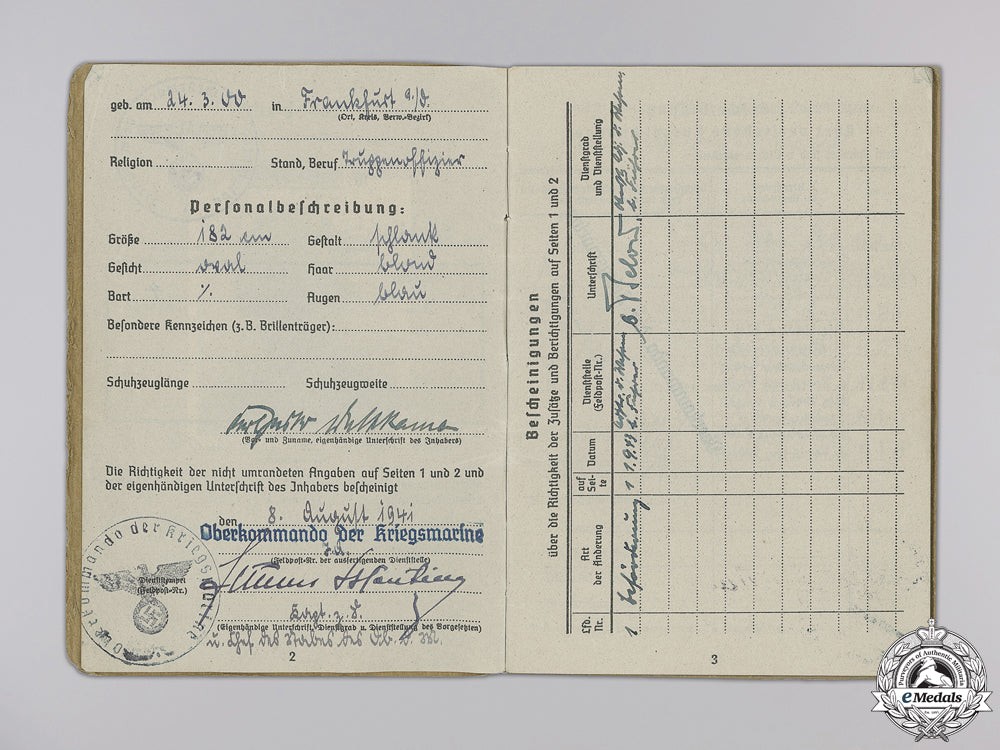 geb. am 24. 3. 00 in Frankfurt a./O.
(Ort, Kreis, Verw.-Bezirk)
Religion Stand, Beruf Truppenoffizier
Personalbeschreibung:
Größe 182 cm Gestalt schlank
Gesicht oval Haar blond
Bart ./. Augen blau
Besondere Kennzeichen (z. B. Brillenträger):
Schuhzeuglänge Schuhzeugweite
(Vor- und Zuname, eigenhändige Unterschrift des Inhabers)
Die Richtigkeit der nicht umrandeten Angaben auf Seiten 1 und 2 und
der eigenhändigen Unterschrift des Inhabers bescheinigt
den 8. August 1941
Oberkommando der Kriegsmarine
(Feldpost-Nr. der ausfertigenden Dienststelle)
Oberkommando der Kriegsmarine
Dienststempel
(Feldpost-Nr.)
Kapt. z. S.
(Eigenhändige Unterschrift, Dienstgrad u. Dienststellung des Vorgesetzten)
u. Chef des Stabes des Ob. d. M.
2
Bescheinigungen
über die Richtigkeit der Zusätze und Berichtigungen auf Seiten 1 und 2
Lfd. Nr.
Art der Änderung
auf Seite
Datum
Dienststelle (Feldpost-Nr.)
Unterschrift
Dienstgrad und Dienststellung
1 Beförderung 1 1.9.43
3
Purveyors of Authentic Militaria
eMedals